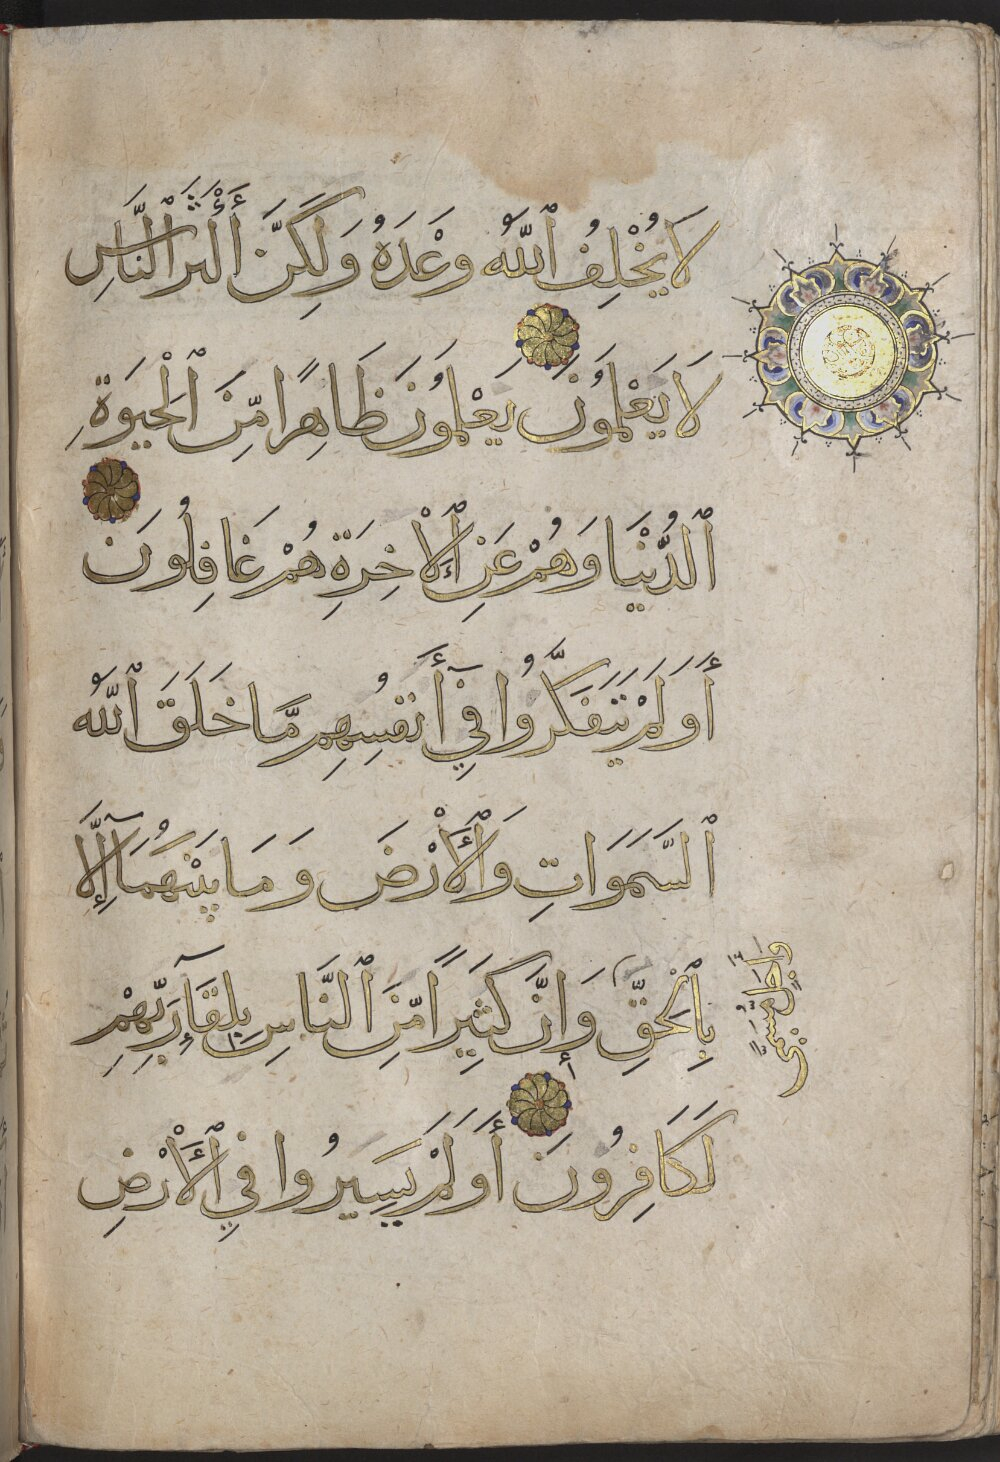 لَا يُخْلِفُ ٱللَّهُ وَعْدَهُ وَلَٰكِنَّ أَكْثَرَ ٱلنَّاسِ
لَا يَعْلَمُونَ يَعْلَمُونَ ظَاهِرًا مِّنَ ٱلْحَيَوٰةِ
ٱلدُّنْيَا وَهُمْ عَنِ ٱلْأَخِرَةِ هُمْ غَافِلُونَ
أَوَلَمْ يَتَفَكَّرُوا فِي أَنفُسِهِم مَّا خَلَقَ ٱللَّهُ
ٱلسَّمَوَاتِ وَٱلْأَرْضَ وَمَا بَيْنَهُمَآ إِلَّا
بِٱلْحَقِّ وَإِنَّ كَثِيرًا مِّنَ ٱلنَّاسِ بِلِقَآءِ رَبِّهِمْ
لَكَافِرُونَ أَوَلَمْ يَسِيرُوا فِي ٱلْأَرْضِ
وَأَجَلٍ مُّسَمًّى